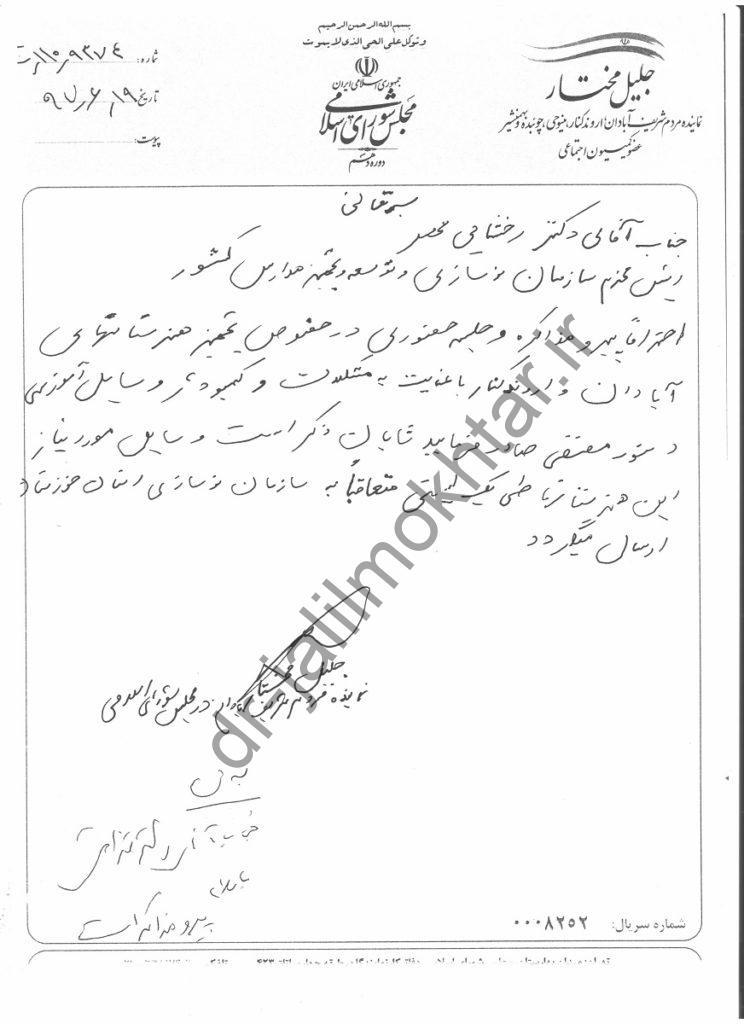 بسم الله الرحمن الرحیم
و توکل علی الحی الذی لا یموت
جمهوری اسلامی ایران
مجلس شورای اسلامی
دوره دهم
جلیل مختار
نماینده مردم شریف آبادان، اروندکنار، منیوحی، چوئبده و بهمنشیر
عضو کمیسیون اجتماعی
شماره: ۱۱۰/۹۳۷۴/ت
تاریخ: ۹۷/۶/۱۹
پیوست:
بسمه تعالی
جناب آقای دکتر رخشانی مهر
رییس محترم سازمان نوسازی و توسعه و تجهیز مدارس کشور
احتراماً پیرو مذاکره و جلسه حضوری در خصوص تجهیز هنرستانهای
آبادان و اروندکنار با عنایت به مشکلات و کمبود وسایل آموزشی
دستور مقتضی صادر فرمایید شایان ذکر است وسایل مورد نیاز
این هنرستانها طی یک لیستی متعاقباً به سازمان نوسازی استان خوزستان
ارسال میگردد
جلیل مختار
نماینده مردم شریف آبادان در مجلس شورای اسلامی
جناب آقای
با سلام
پیرو مذاکرات
شماره سریال: ۰۰۰۸۲۵۲
dr-jalilmokhtar.ir